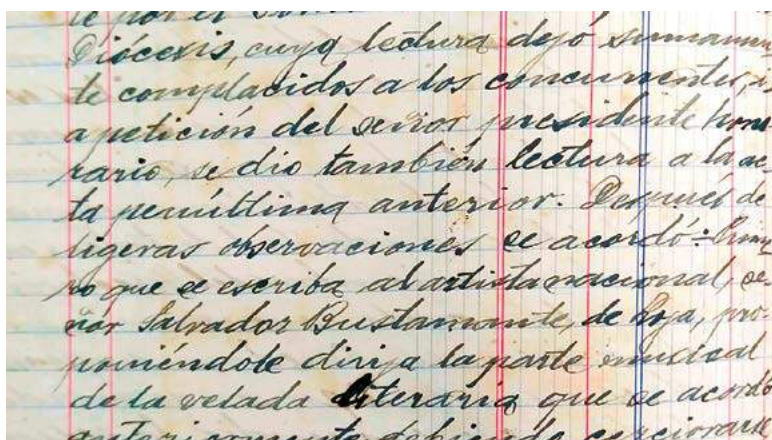 te por el
Diócesis, cuya lectura dejó sumamen
te complacidos a los concurrentes, i
a petición del señor presidente hono
rario, se dio también lectura a la ac
ta penúltima anterior. Después de
ligeras observaciones se acordó:- Prime
ro que se escriba al artista nacional, se-
ñor Salvador Bustamante, de Loja, pro-
poniéndole dirija la parte musical
de la velada literaria que se acordó
anteriormente, debiendo cerciorarse